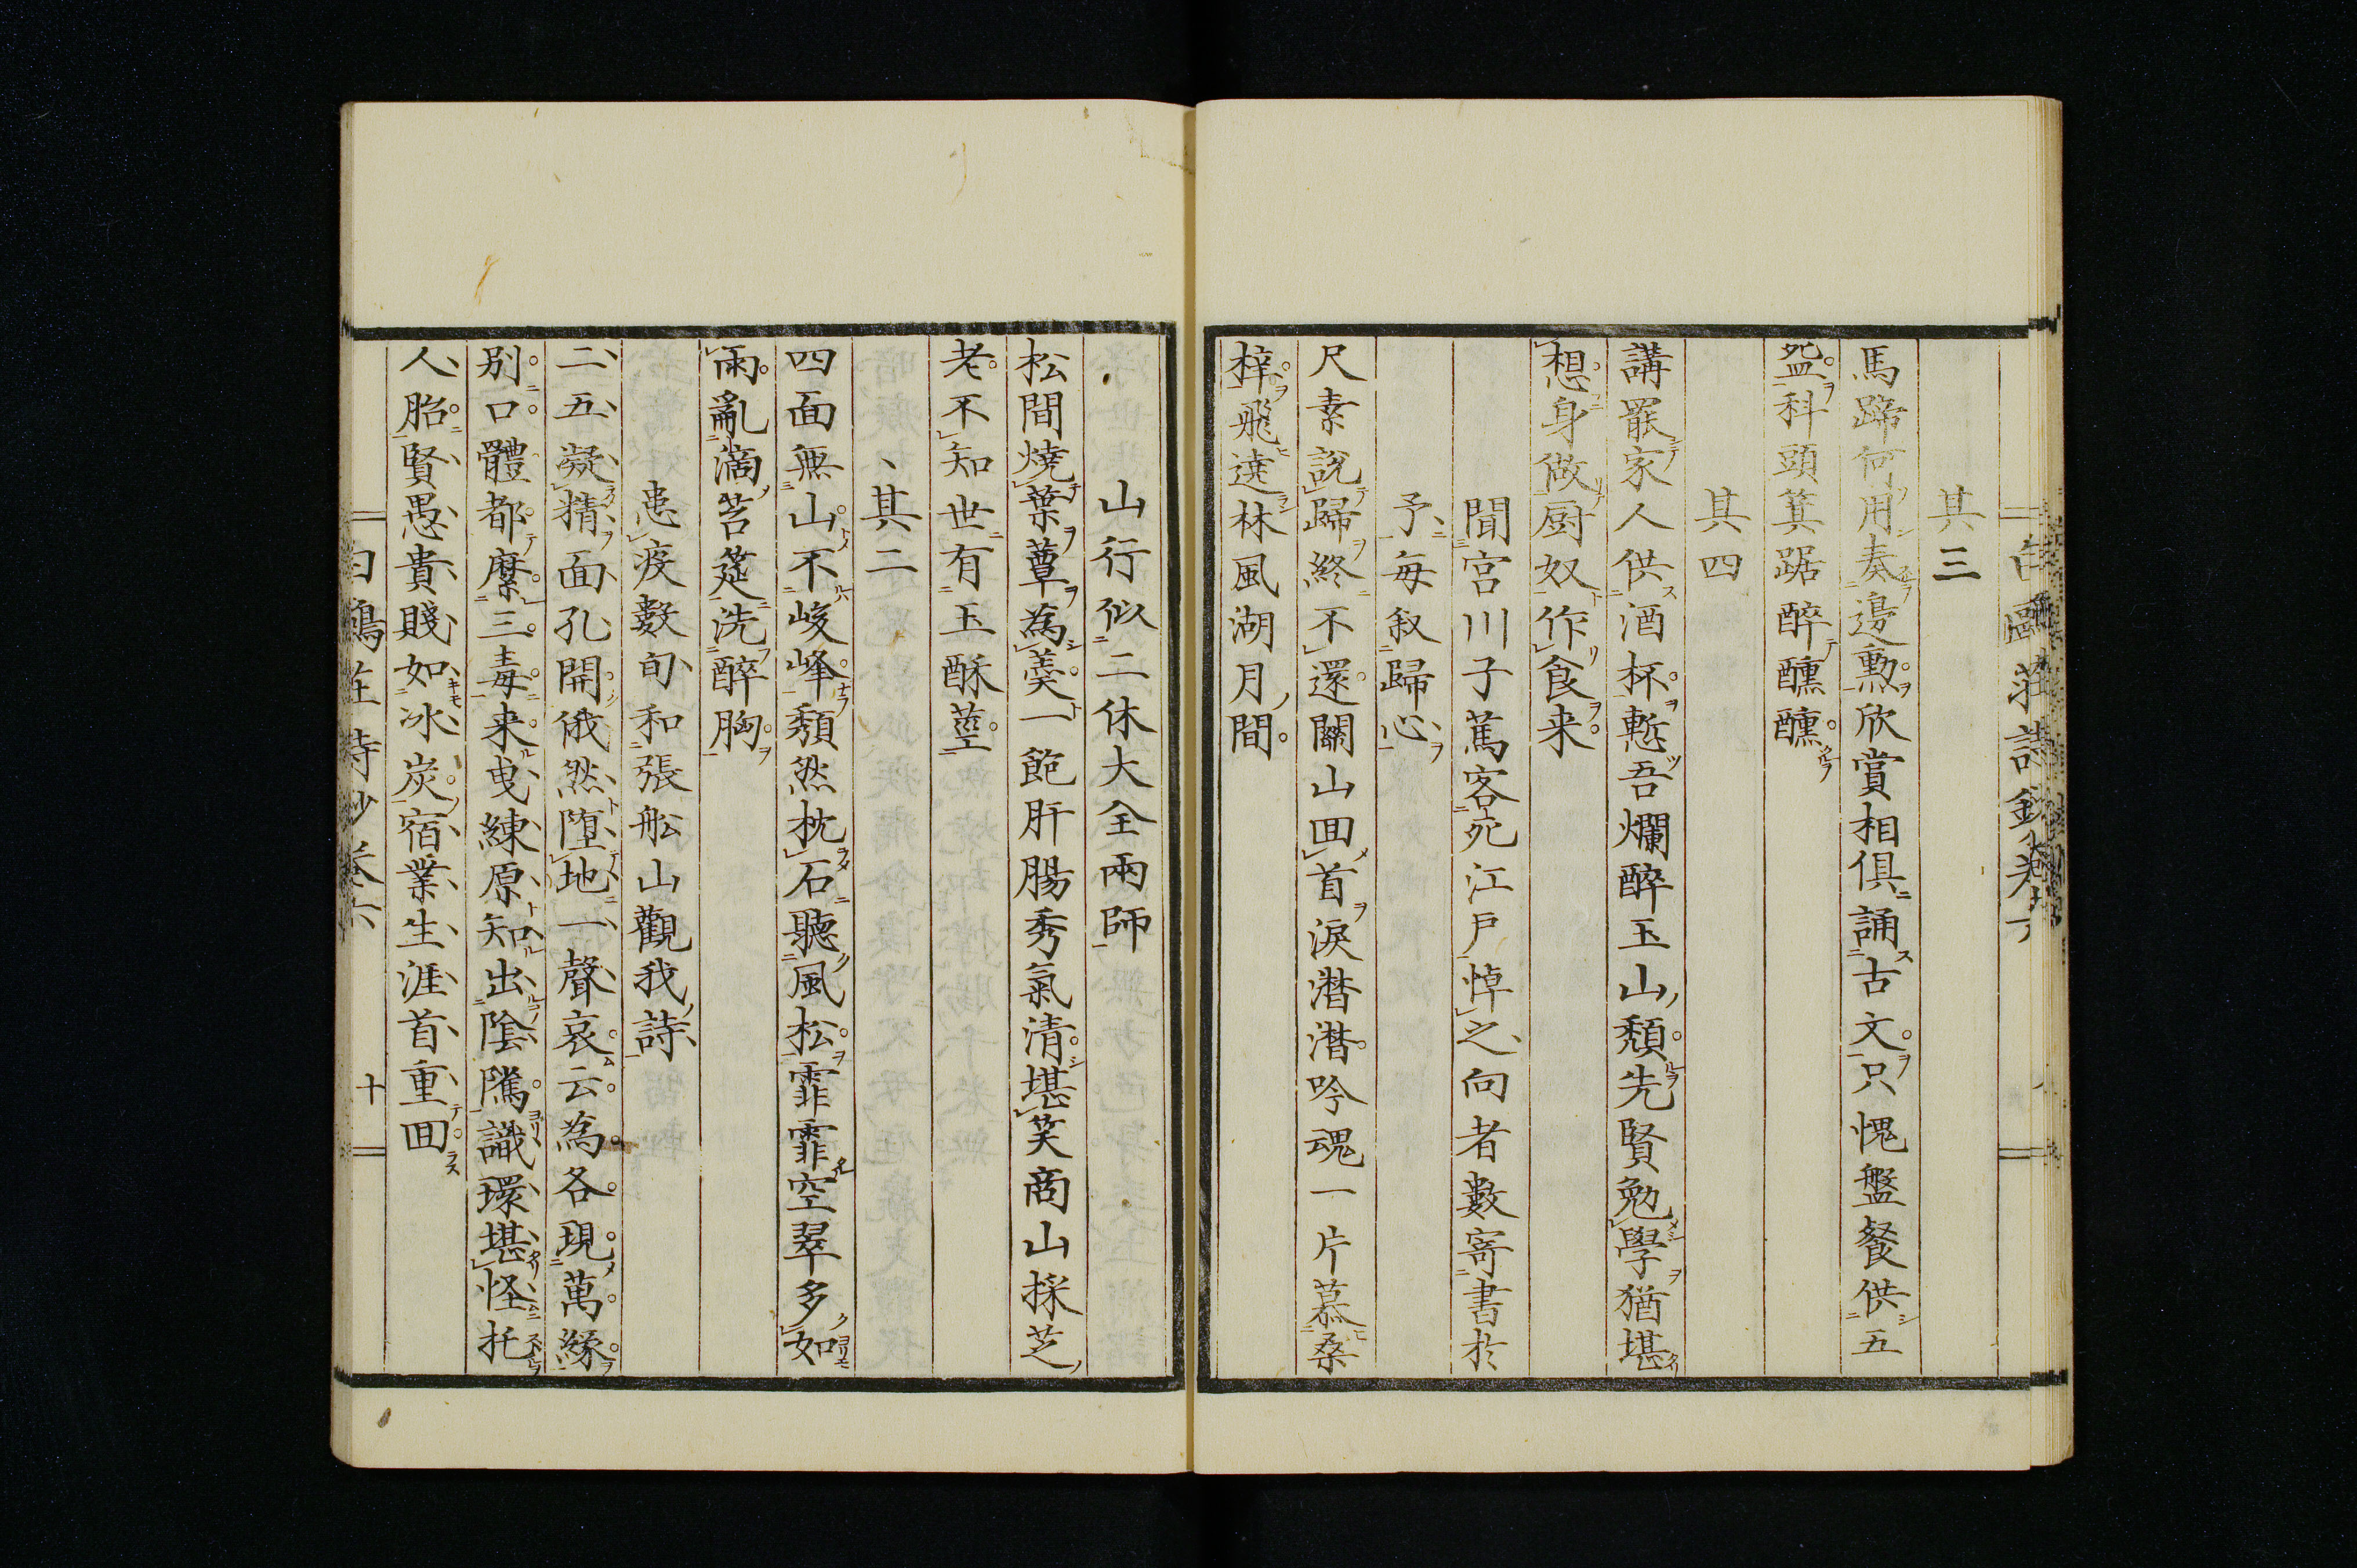 其三
馬蹄何用奏邊勲欣賞相俱誦古文只愧盤餐供五
盌科頭箕踞醉醺醺
其四
講罷家人供酒杯慙吾爛醉玉山頽先賢勉學猶堪
想身做厨奴作食来
聞宮川子篤客死江戸悼之向者數寄書於
予毎叙歸心
尺素說歸終不還關山回首淚潸潸吟魂一片慕桑
梓飛遶林風湖月間
山行似二休大全兩師
松間燒葉蕈為羮一飽肝腸秀氣清堪笑商山採芝
老不知世有玉酥莖
其二
四面無山不峻峰頽然枕石聽風松霏霏空翠多如
雨亂滴苔筵洗醉胸
患疫數旬和張船山觀我詩
二五凝精面孔開俄然墮地一聲哀云為各現萬緣
別口體都縻三毒来曳練原知出陰隲識環堪怪托
人胎賢愚貴賤如冰炭宿業生涯首重回
白鷗莊詩鈔卷六
十